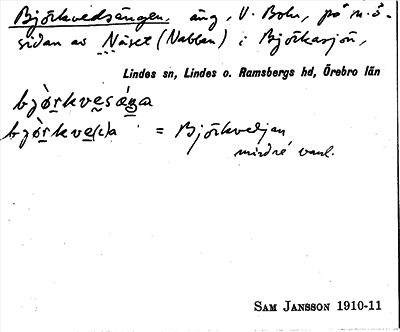 Björkvedsängen, äng, V. Bohr, på n.ö.
sidan av Näset (Nabben) i Björkasjön,
Lindes sn, Lindes o. Ramsbergs hd, Örebro län
bjòrkvesáŋa
bjòrkve(d)a = Björkvedjan
mindre vanl.
SAM JANSSON 1910-11